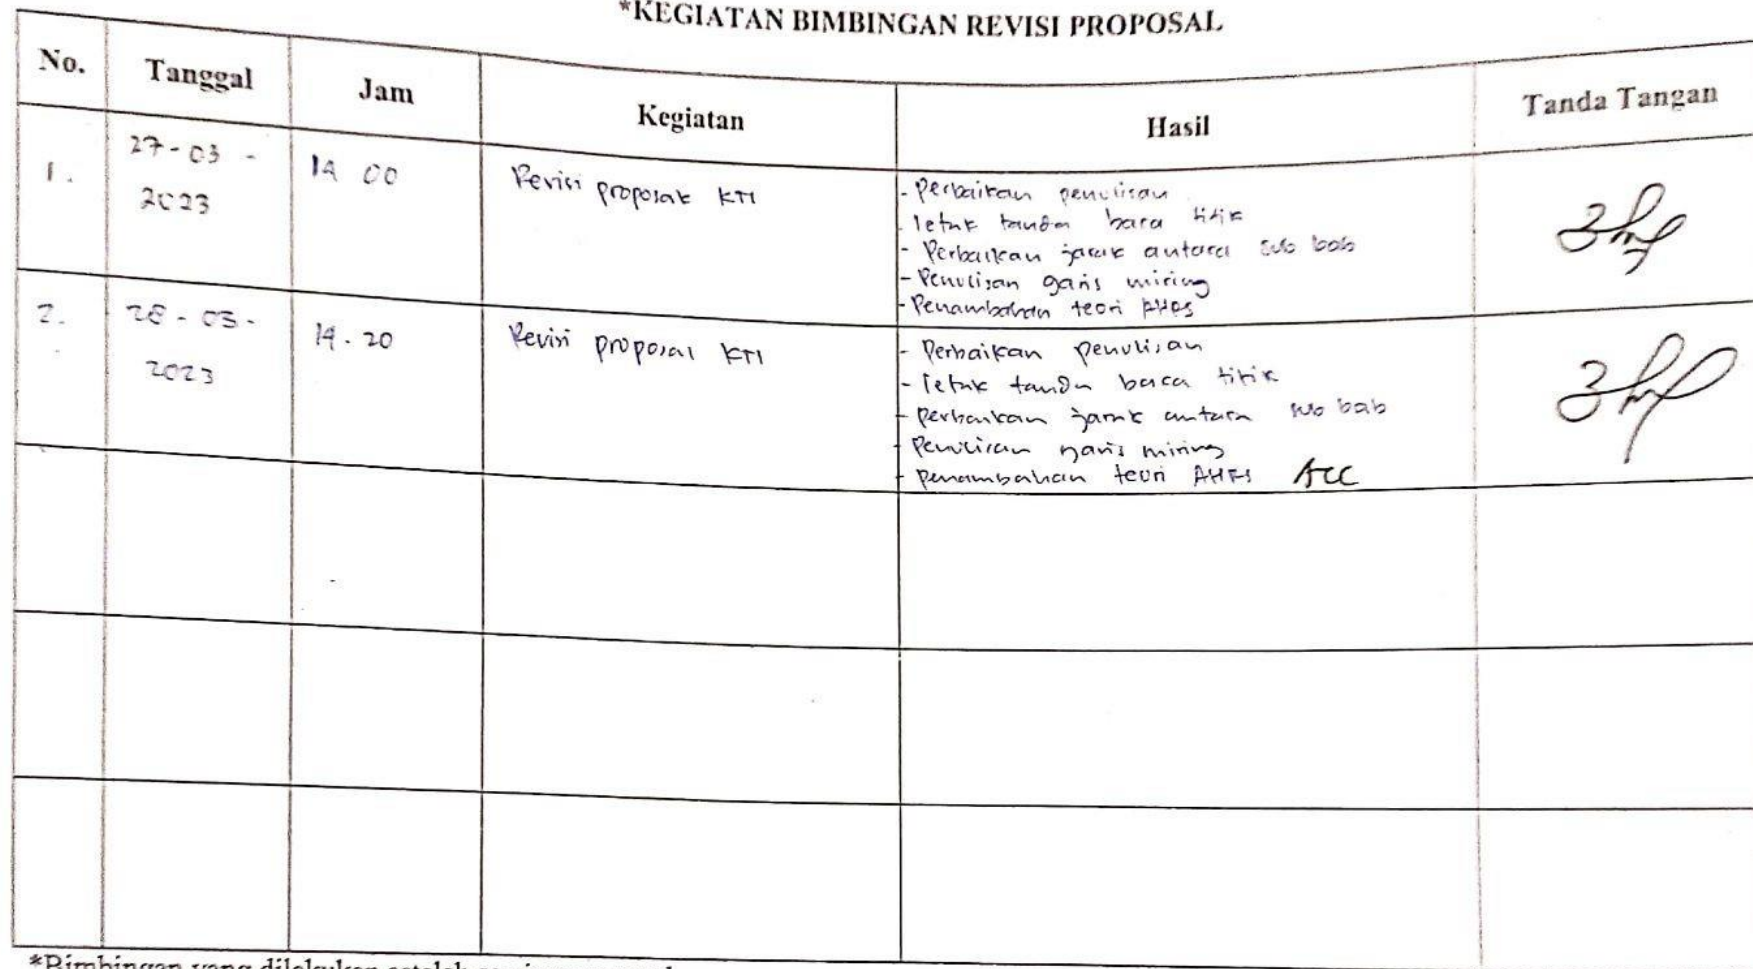 *KEGIATAN BIMBINGAN REVISI PROPOSAL
No. Tanggal Jam Kegiatan Hasil Tanda Tangan
1. 27-03-2023 14 00 Revisi proposal KTI
- Perbaikan penulisan
- letak tanda baca titik
- Perbaikan jarak antara sub bab
- Penulisan garis miring
- Penambahan teori
2. 28-03-2023 14.20 Revisi proposal KTI
- Perbaikan penulisan
- letak tanda baca titik
- perbaikan jarak antara sub bab
- Penulisan garis miring
- penambahan teori ACC
*Bimbingan yang dilakukan setelah